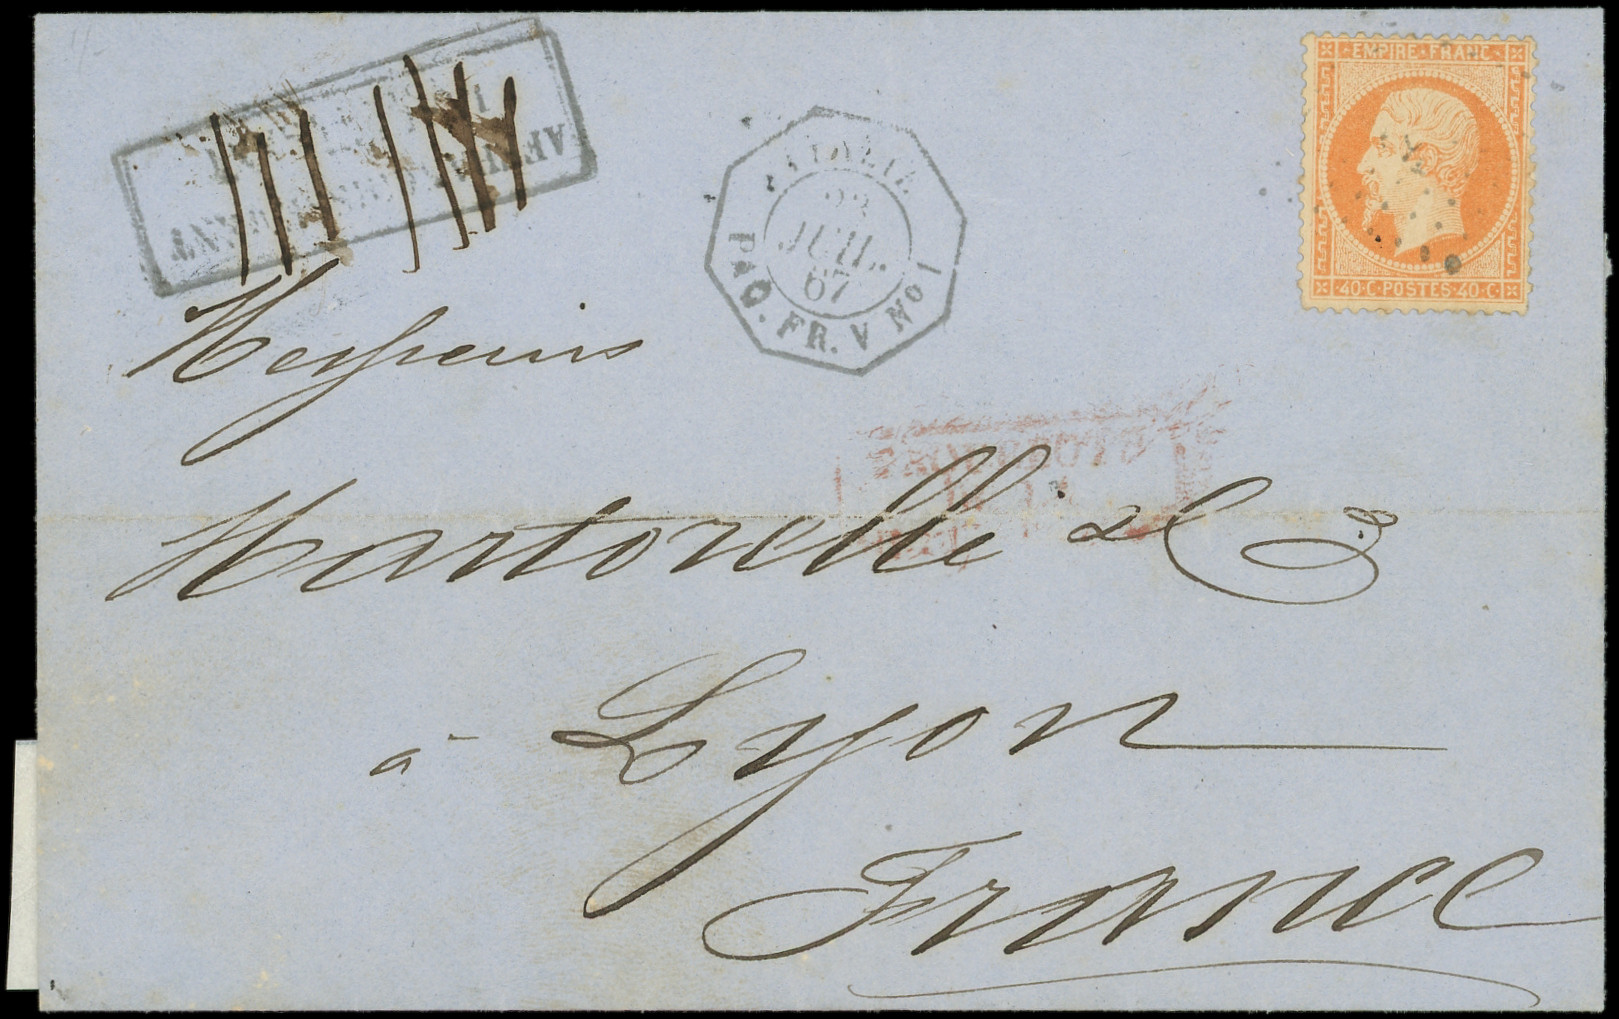 EMPIRE FRANC
40·C·POSTES·40·C
23
JUIL.
67
PAQ. FR. V No 1
AFFRANCH. INSUFFISANT
Messieurs
Martorelle & Cie
à Lyon
France